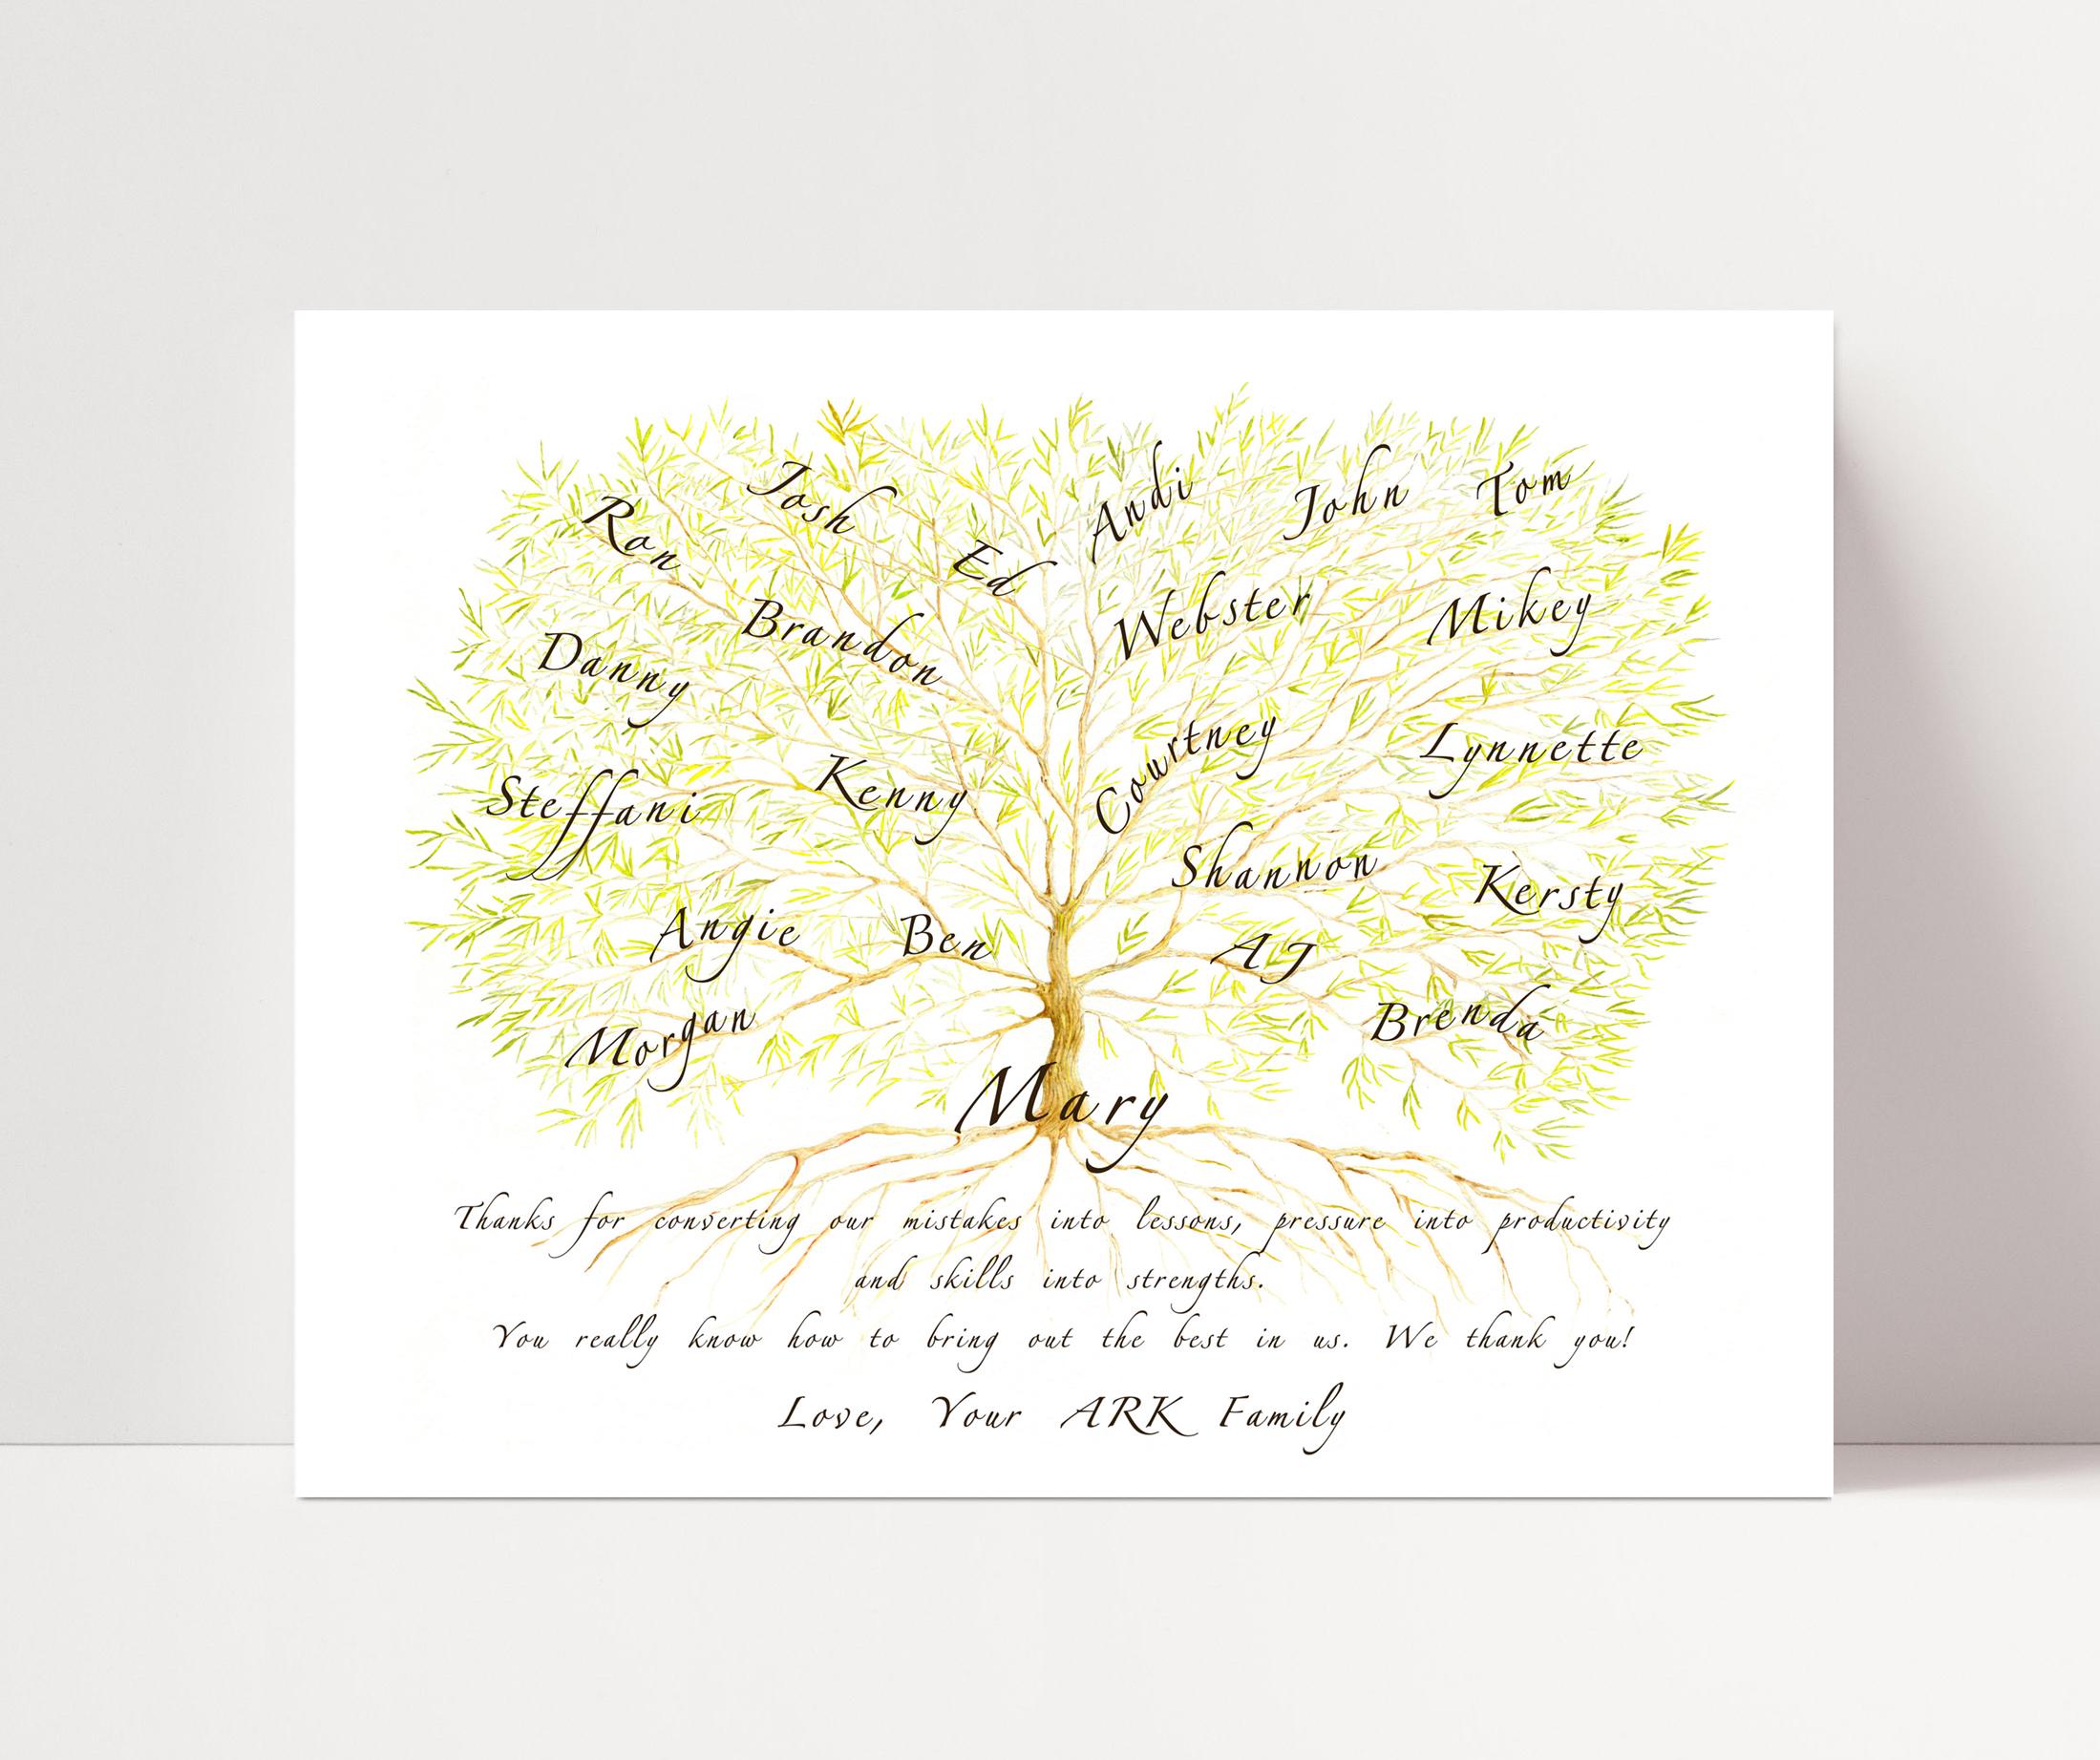 Josh
Andi
John
Tom
Ron
Ed
Brandon
Webster
Mikey
Danny
Courtney
Lynnette
Steffani
Kenny
Shannon
Kersty
Angie
Ben
AJ
Morgan
Brenda
Mary
Thanks for converting our mistakes into lessons, pressure into productivity
and skills into strengths.
You really know how to bring out the best in us. We thank you!
Love, Your ARK Family